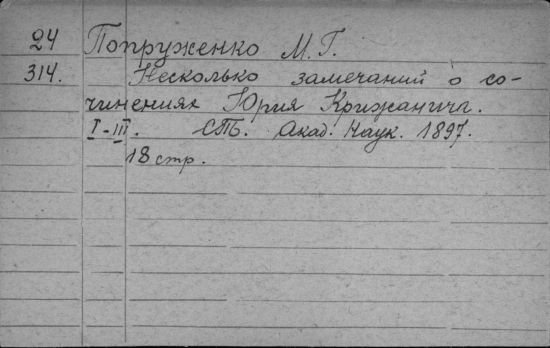 24 Попруженко М. Г.
314. Несколько замечаний о со-
чинениях Юрия Крижанича.
I-III. СПБ. Акад. Наук. 1897.
18 стр.